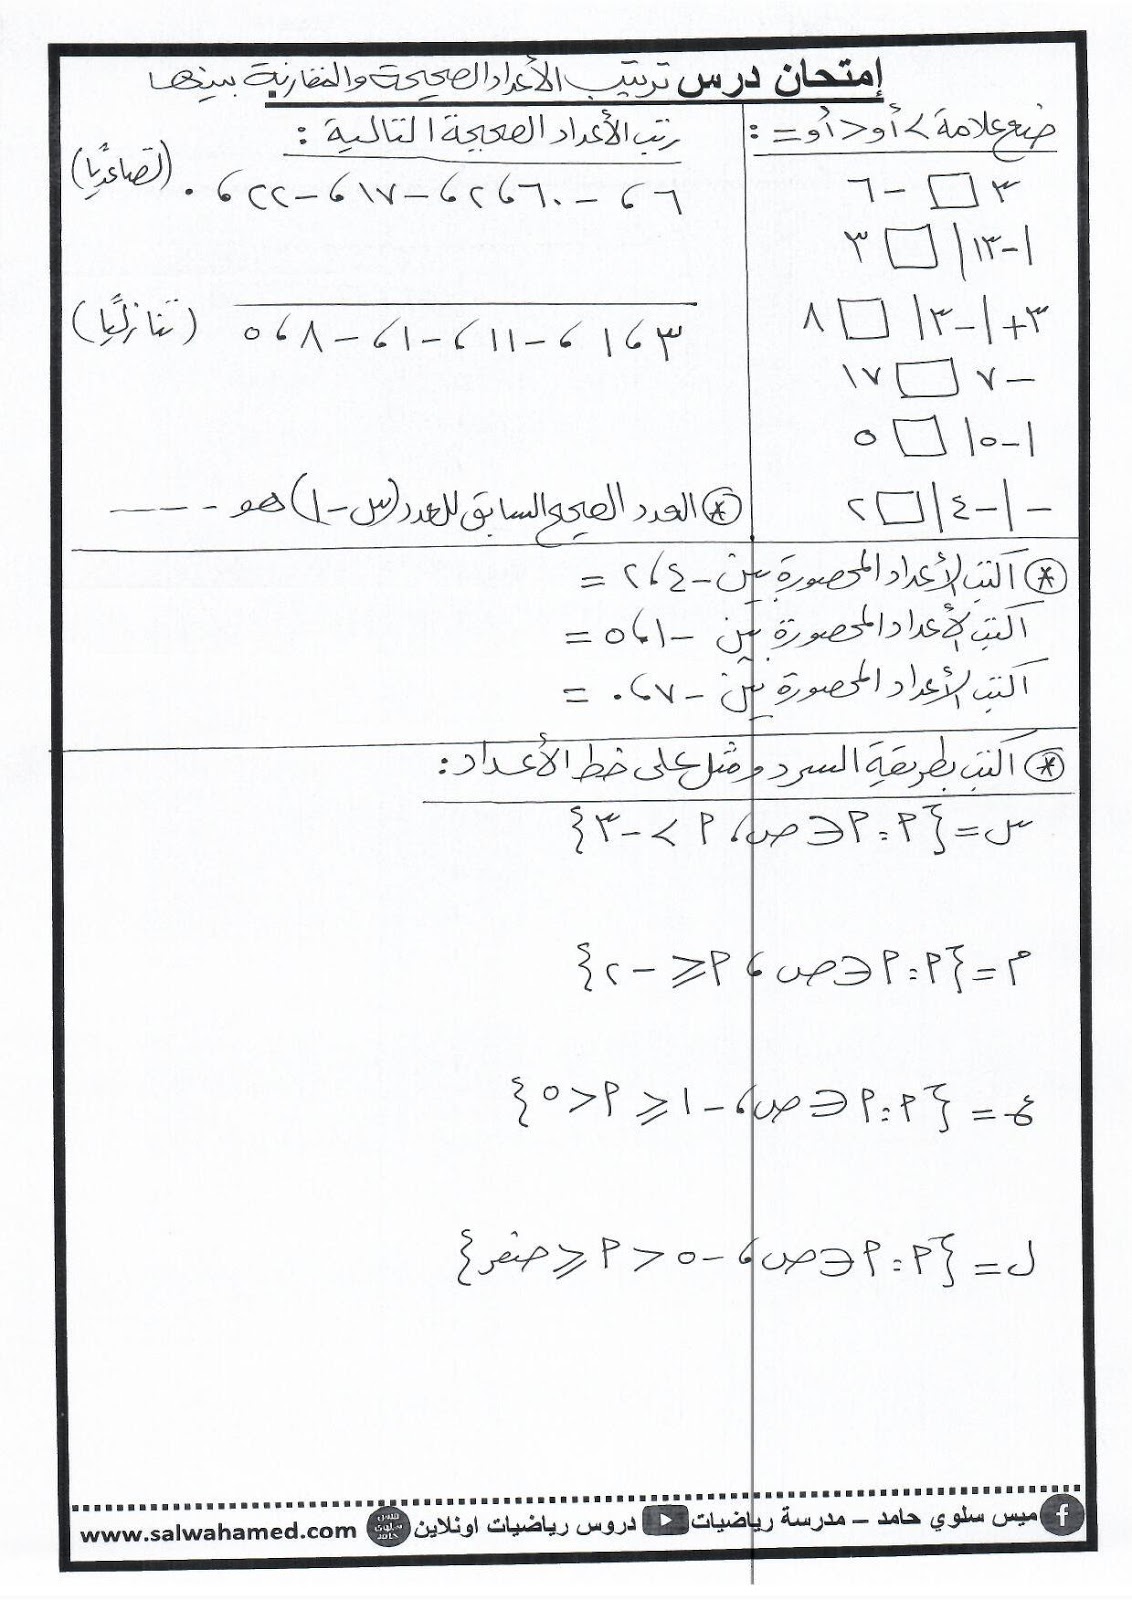 إمتحان درس ترتيب الأعداد الصحيحة والمقارنة بينها
ضع علامة > أو < أو = :
٣ □ -٦
|-١٣| □ ٣
٣+|-٣| □ ٨
-٧ □ ١٧
|-٥| □ ٥
-|-٤| □ ٢
رتب الأعداد الصحيحة التالية :
٦ ، -٦٠ ، ٢ ، -١٧ ، -٢٢ ، ٠ (تصاعديًا)
٣ ، ١ ، -١١ ، -١ ، -٨ ، ٥ (تنازليًا)
* العدد الصحيح السابق للعدد (س-١) هو ----
* اكتب الأعداد المحصورة بين -٤ ، ٢ =
اكتب الأعداد المحصورة بين -١ ، ٥ =
اكتب الأعداد المحصورة بين -٧ ، ٠ =
* اكتب بطريقة السرد ومثل على خط الأعداد :
س = {٩ : ٩ ∈ ص ، ٩ > -٣}
م = {٩ : ٩ ∈ ص ، ٩ ≤ -٢}
ع = {٩ : ٩ ∈ ص ، -١ ≥ ٩ > ٥}
ل = {٩ : ٩ ∈ ص ، -٥ > ٩ ≥ صفر}
ميس سلوي حامد – مدرسة رياضيات دروس رياضيات اونلاين www.salwahamed.com